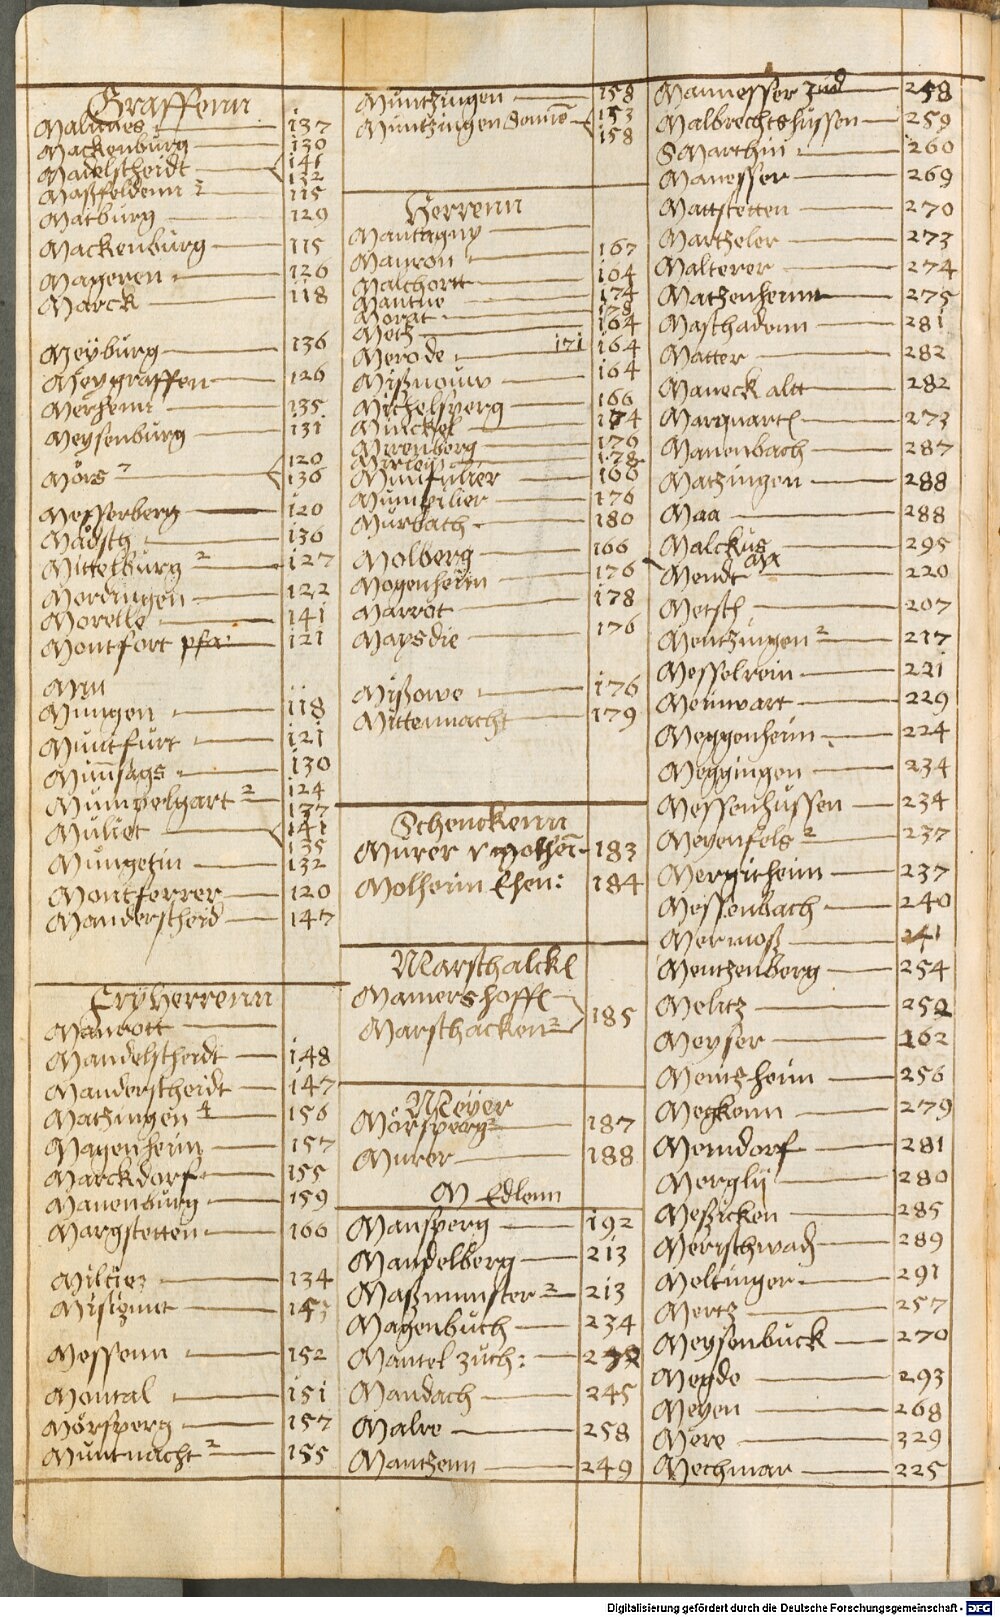 Graffenn
Maludes 137
Mackenburg 130
Madelscheidt 141
132
Maßfeldenn 2 115
Matburg 129
Mackenburg 115
Mageren 126
Marck 118
Meÿburg 136
Meygraffen 126
Merhenn 135
Meysenburg 131
Mörs 2 120
136
Messerberg 120
Mädsch 136
Mittelburg 2 127
Mordingen 122
Morelle 141
Montfort pfa: 121
Mungen 118
Muntfurt 121
Mumsags 130
Mumpelgart 2 124
137
Muliet 141
135
Mungetin 132
Montferrer 120
Manderscheid 147
Freÿ Herrenn
Mandott
Mandelscheidt 148
Manderscheidt 147
Matzingen 4 156
Magenheim 157
Marckdorf 155
Manenburg 159
Margstetten 160
Milciez 134
Misiginit
Messenn 152
Montal 151
Mörsperg 157
Muntnacht 2 155
Muntzingen 158
Muntzingen 153
158
Herrenn
Mantagny
Manron 167
Malchort 164
Mantue 174
Morat 178
Metz 164
Merode 171 164
Mißnouw 164
Michelsperg 166
Minckel 174
Mirenberg 176
178
Muntfilier 166
Mumpilier 176
Murbach 180
Molberg 166
Mogenheim 176
Marrot 178
Maysdie 176
Mißowe 176
Mittennacht 179
Schenckenn
Murer 183
Molheim Ehen: 184
Marschalckh
Mamershoffe
Marschacken 2 185
Meÿer
Mörsperg 2 187
Murer 188
M Edlenn
Mansperg 192
Mandelberg 213
Maßmunster 2 213
Magenbuch 234
Mantel zuch:
Mandach 245
Malre 258
Mantzenn 249
Mannesser Jud 258
Malbrechtshussen 259
S Marthin 260
Manesser 269
Mattstetten 270
Martzeler 273
Malterer 274
Matzenheim 275
Maschadenn 281
Matter 282
Maneck altt 282
Marquart 273
Manenbach 287
Matzingen 288
Maa 288
Malckus 295
Mendt 220
Metsch 207
Mentzingen 2 217
Messelrein 221
Meinwart 229
Meggenheim 224
Meggingen 234
Messenhussen 234
Meyenfels 2 237
Mergitheim 237
Messenbach 240
Mermoß 241
Mentzenberg 254
Melitz 252
Meyser 262
Mentzheim 256
Meckenn 279
Memdorf 281
Merglÿ 280
Meßicken 285
Merischwad 289
Meltinger 291
Mertz 257
Meysenbuck 270
Megde 293
Meyen 268
Mere 329
Mechmar 225
Digitalisierung gefördert durch die Deutsche Forschungsgemeinschaft - DFG